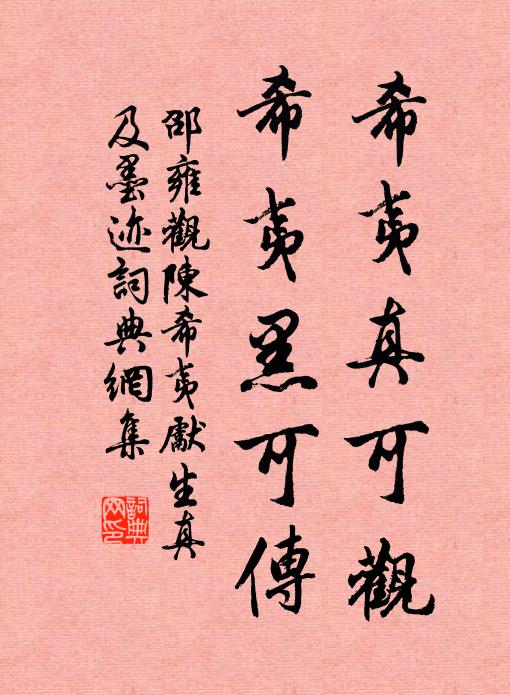 希夷真可觀
希夷黑可傳
邵雍觀陳希夷獻生真
及墨迹詞典網集
詞典
网印